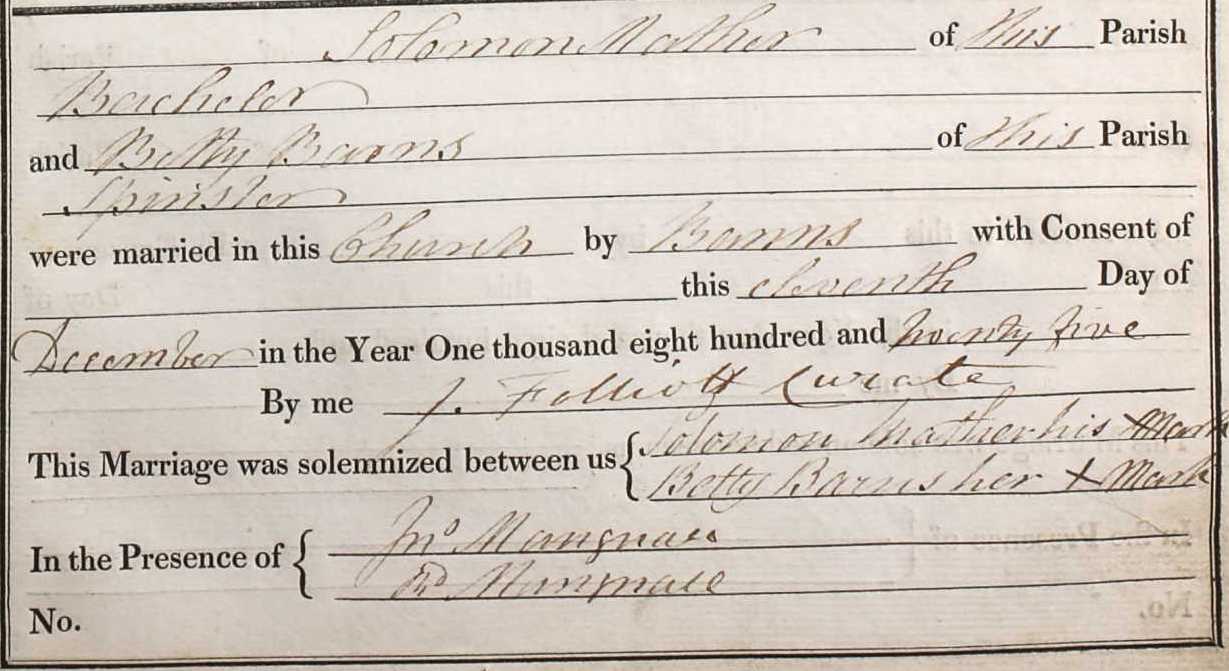 Solomon Mather of this Parish
Bachelor
and Betty Barns of this Parish
Spinster
were married in this Church by Banns with Consent of
this eleventh Day of
December in the Year One thousand eight hundred and twenty five
By me J. Folliott Curate
This Marriage was solemnized between us { Solomon Mather his X Mark
Betty Barns her X Mark
In the Presence of { Jnº Mangnall
Rd Mangnall
No.